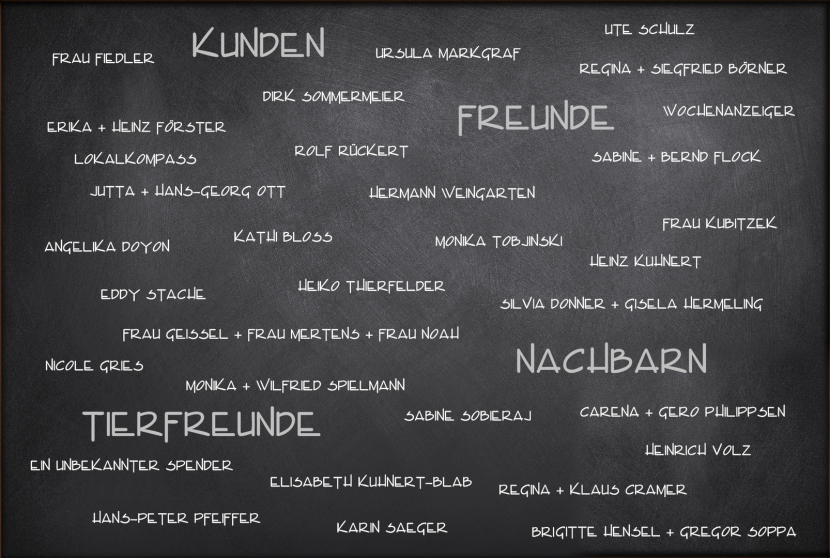 UTE SCHULZ
KUNDEN
FRAU FIEDLER
URSULA MARKGRAF
REGINA + SIEGFRIED BÖRNER
DIRK SOMMERMEIER
FREUNDE
WOCHENANZEIGER
ERIKA + HEINZ FÖRSTER
ROLF RÜCKERT
LOKALKOMPASS
SABINE + BERND FLOCK
JUTTA + HANS-GEORG OTT
HERMANN WEINGARTEN
FRAU KUBITZEK
KATHI BLOSS
MONIKA TOBJINSKI
ANGELIKA DOYON
HEINZ KUHNERT
HEIKO THIERFELDER
EDDY STACHE
SILVIA DONNER + GISELA HERMELING
FRAU GEISSEL + FRAU MERTENS + FRAU NOAH
NACHBARN
NICOLE GRIES
MONIKA + WILFRIED SPIELMANN
TIERFREUNDE
SABINE SOBIERAJ
CARENA + GERO PHILIPPSEN
HEINRICH VOLZ
EIN UNBEKANNTER SPENDER
ELISABETH KUHNERT-BLAB
REGINA + KLAUS CRAMER
HANS-PETER PFEIFFER
KARIN SAEGER
BRIGITTE HENSEL + GREGOR SOPPA